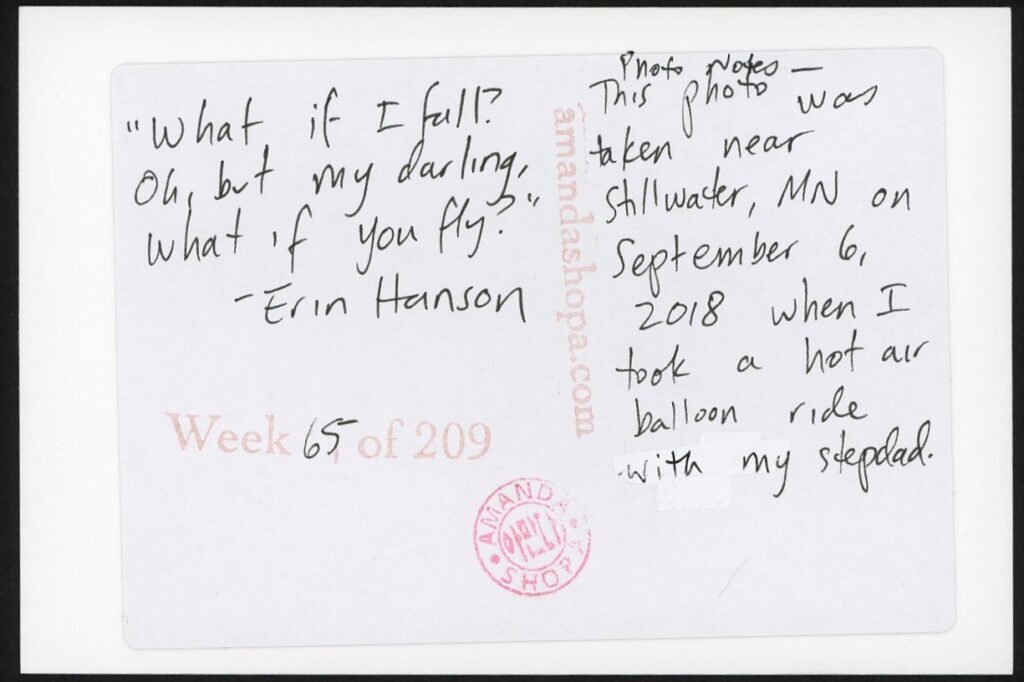 "What if I fall?
Oh, but my darling,
what if you fly?"
- Erin Hanson
Week 65 of 209
amandashopa.com
Photo Notes —
This photo was
taken near
Stillwater, MN on
September 6,
2018 when I
took a hot air
balloon ride
with my stepdad.
AMANDA
SHOPA